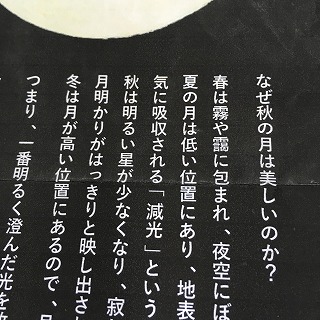 なぜ秋の月は美しいのか？
春は霧や靄に包まれ、夜空にぼ
夏の月は低い位置にあり、地表
気に吸収される「減光」という
秋は明るい星が少なくなり、寂
月明かりがはっきりと映し出さ
冬は月が高い位置にあるので、
つまり、一番明るく澄んだ光を